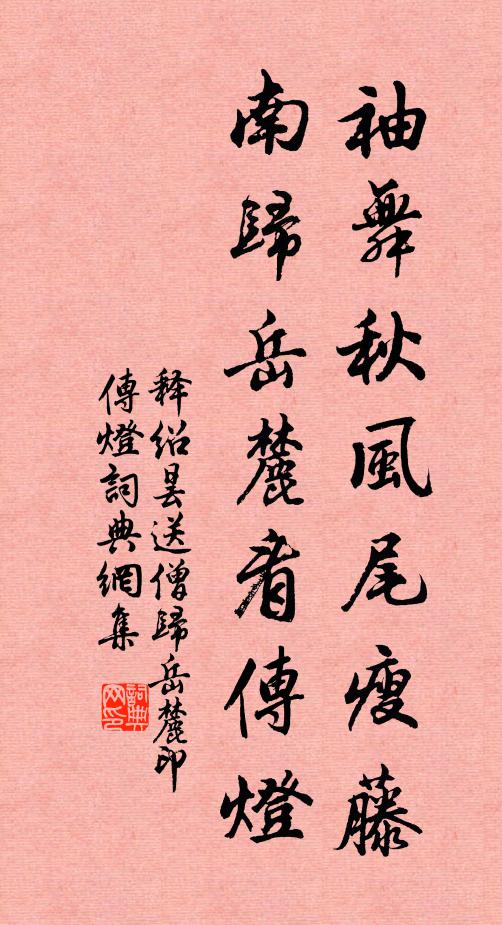 袖舞秋風尾瘦藤
南歸岳麓看傳燈
释紹曇送僧歸岳麓印
傳燈詞典網集
詞典
网印